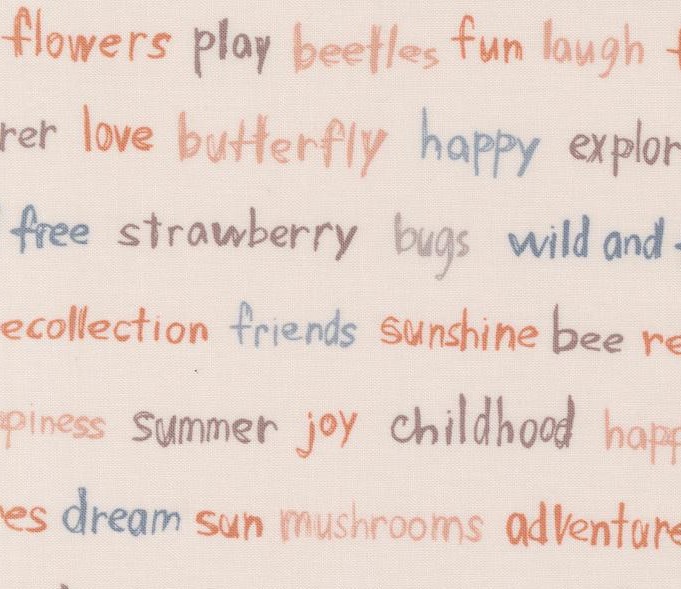 flowers play beetles fun laugh f
rer love butterfly happy explor
free strawberry bugs wild and
ecollection friends sunshine bee re
piness summer joy childhood happ
es dream sun mushrooms adventure